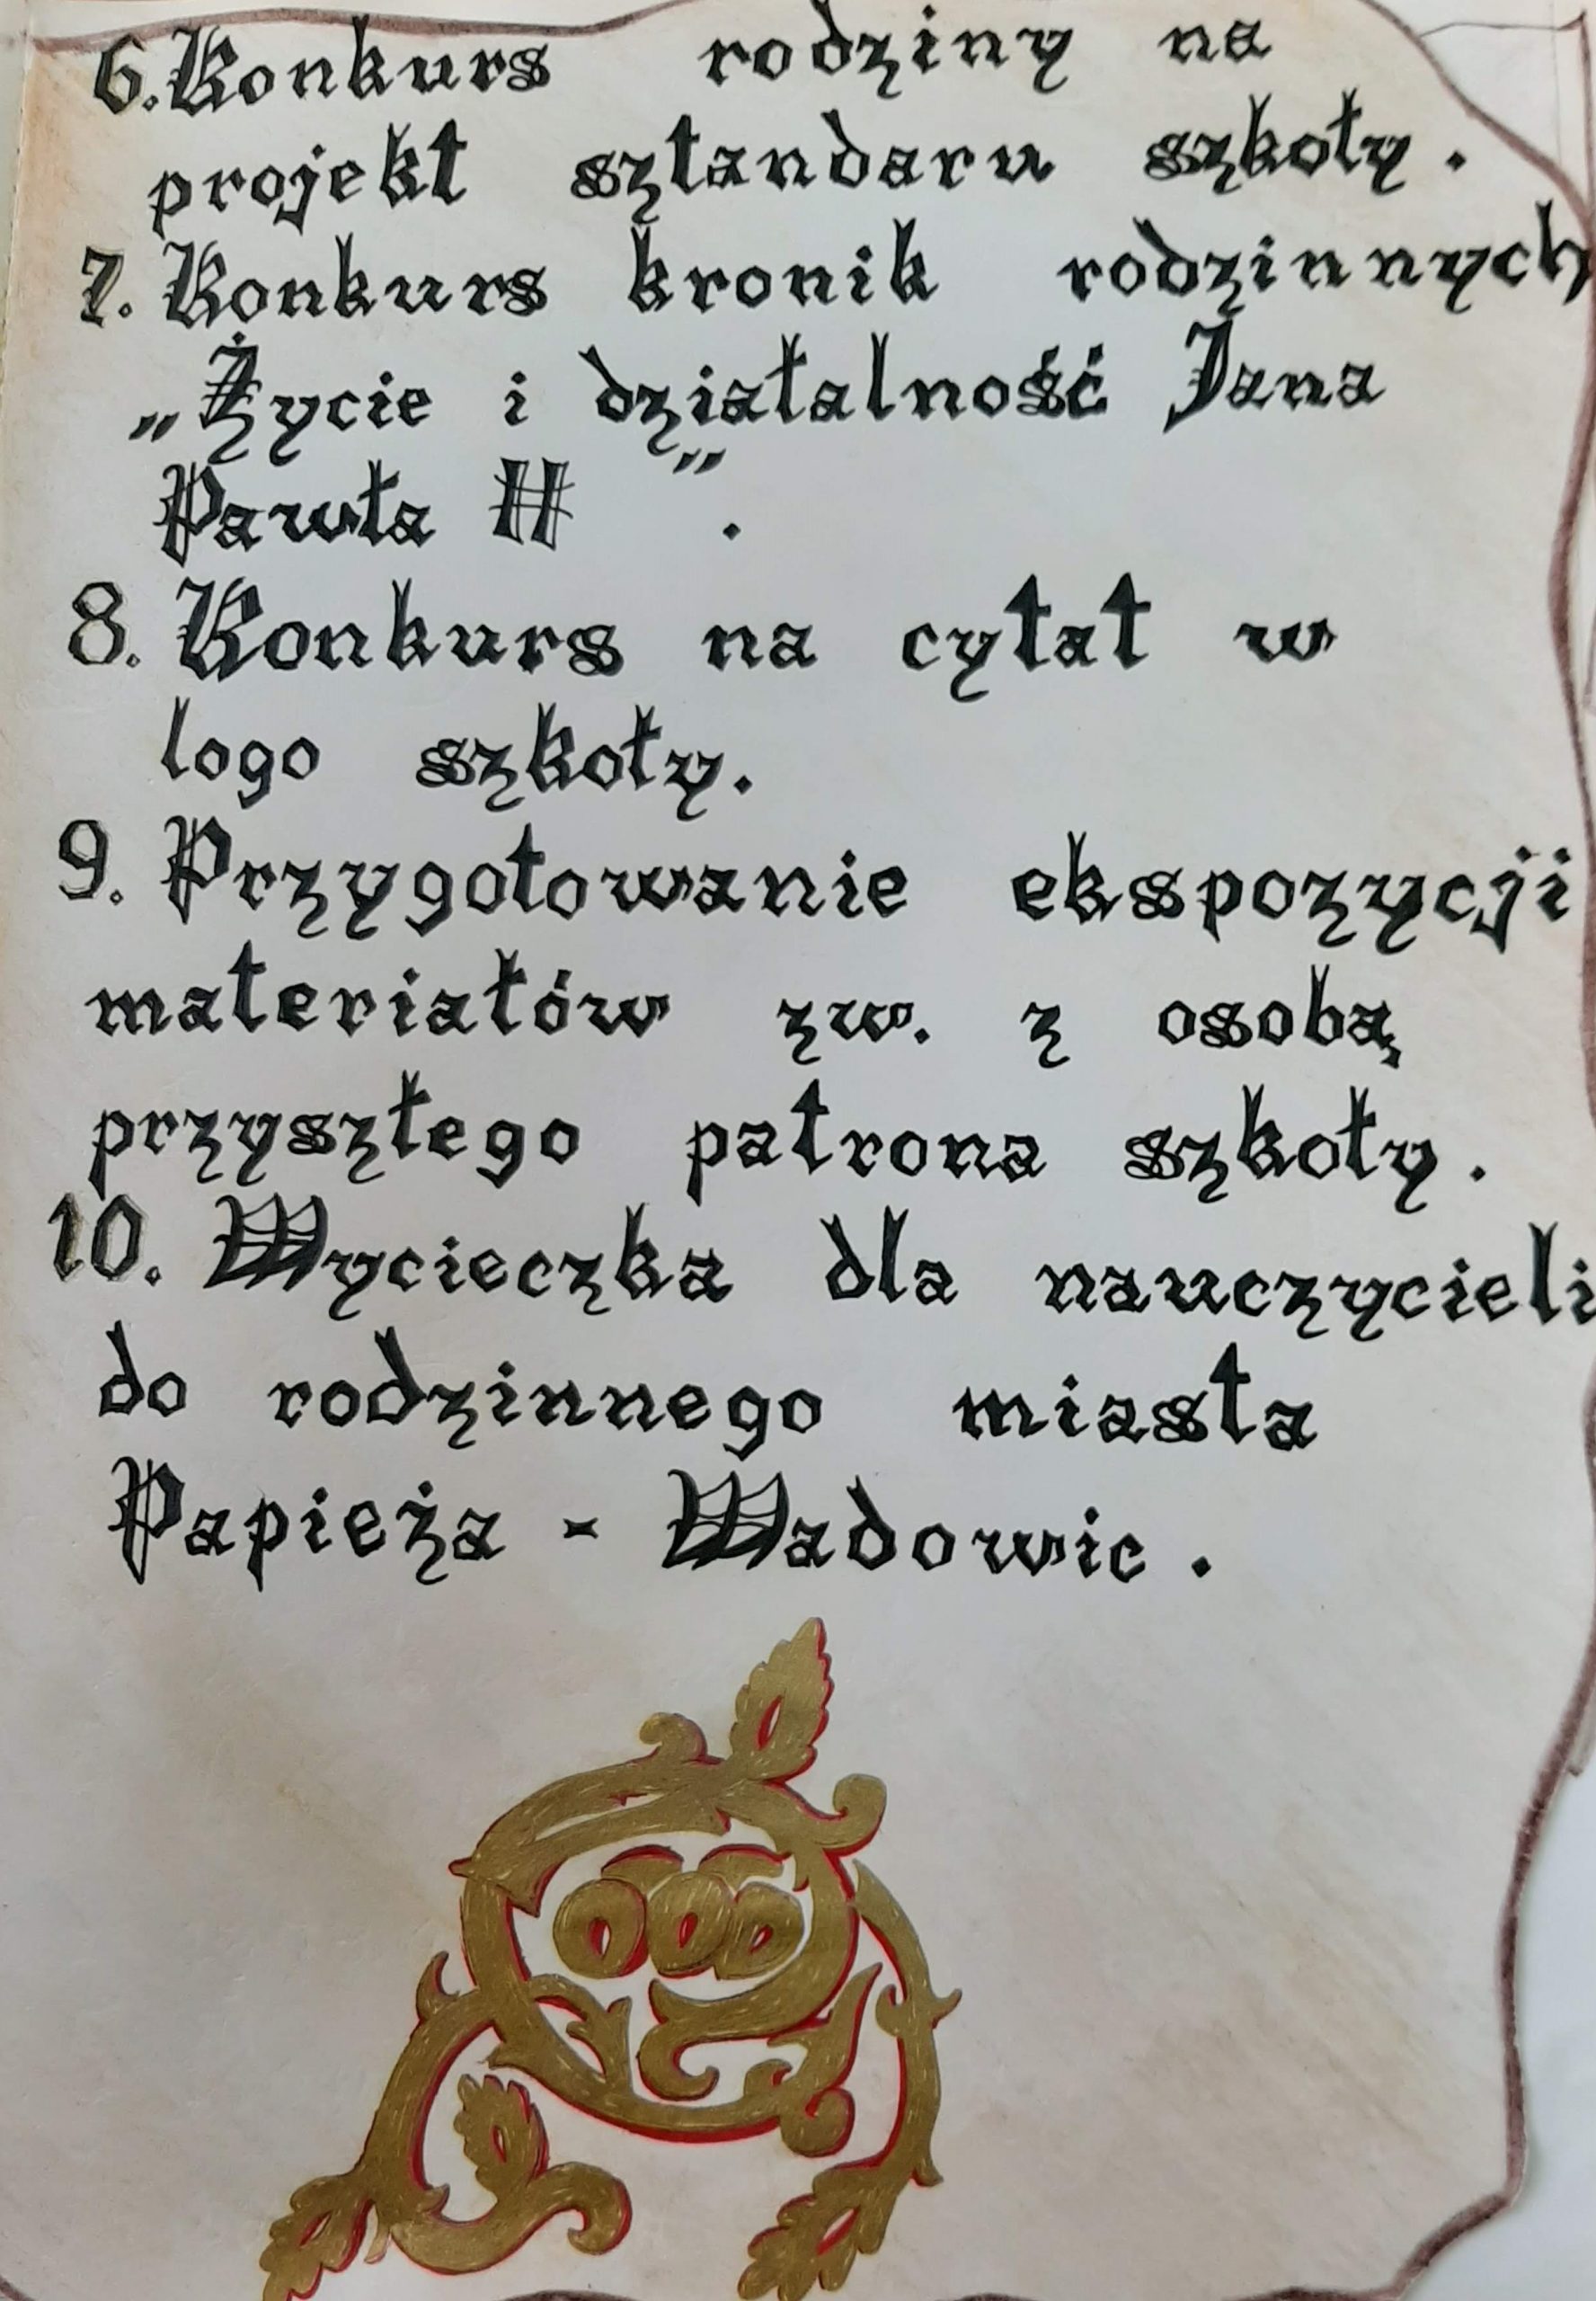 6. Konkurs rodziny na
projekt sztandaru szkoły.
7. Konkurs kronik rodzinnych
„Życie i działalność Jana
Pawła II ”.
8. Konkurs na cytat w
logo szkoły.
9. Przygotowanie ekspozycji
materiałów zw. z osobą
przyszłego patrona szkoły.
10. Wycieczka dla nauczycieli
do rodzinnego miasta
Papieża - Wadowic.